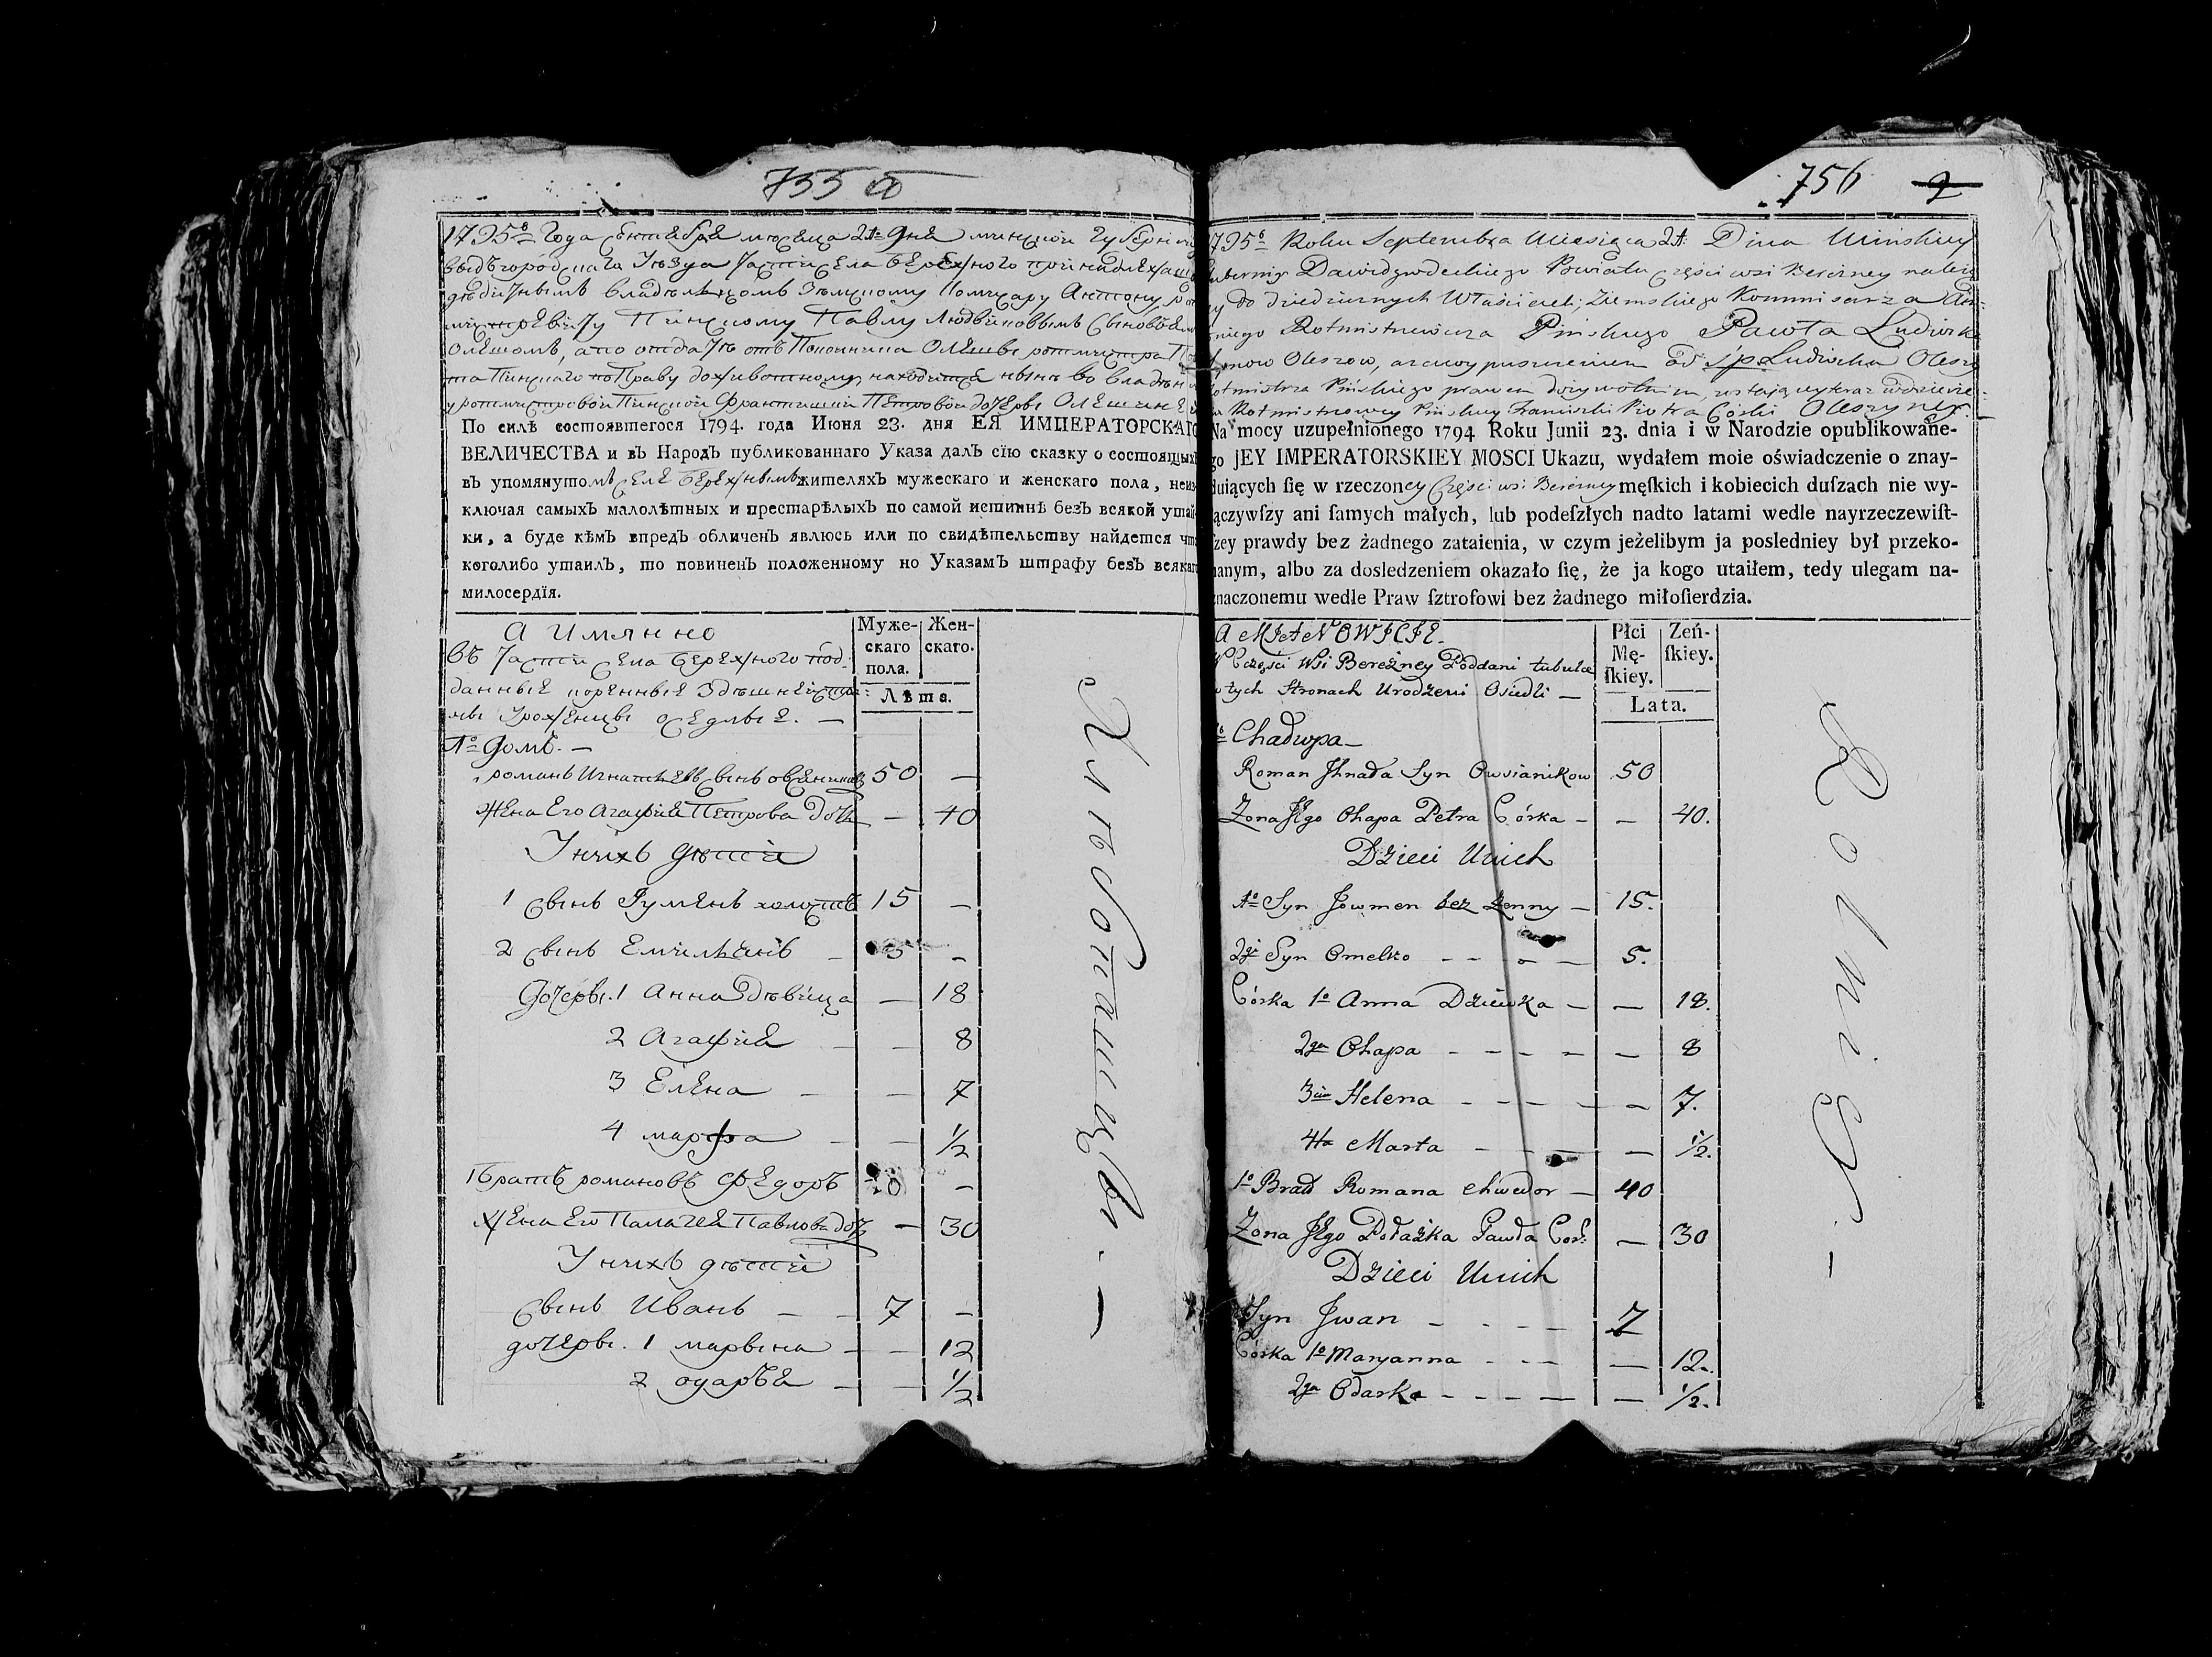 755 об
1795го Года Сентября месяца 21 дня минской Губернии
выдъгородскаго Уезда части села Бережного принадлежаща
дедичнымъ владельцомъ Земскому Комисару Антону
Пинскому Павлу Людвиковымъ Сыновьямъ
Олешомъ, а по отдаче отъ Покойника Олеши ротмистра
Пинскаго по Праву доживотному, находится ныне во владении
у ротмистровой Пинской Францишки Петровой дочери Олешиней
По силѣ состоявшегося 1794. года Июня 23. дня ЕЯ ИМПЕРАТОРСКАГО
ВЕЛИЧЕСТВА и въ Народъ публикованнаго Указа далъ сію сказку о состоящихъ
въ упомянутомъ селе Бережнымъ жителяхъ мужескаго и женскаго пола, неиз-
ключая самыхъ малолѣтныхъ и престарѣлыхъ по самой истиннѣ безъ всякой утай-
ки, а буде кѣмъ впредъ обличенъ явлюсь или по свидѣтельству найдется что
коголибо утаилъ, то повиненъ положенному по Указамъ штрафу безъ всякаго
милосердїя.
А Имянно
Муже-
скаго
пола.
Жен-
скаго.
Лѣта.
въ части села Бережного под-
данные коренные здешней
Уроженцы оседлые. —
1о домъ. —
романъ Игнатьевъ сынъ овсяниковъ 50 —
жена Его Агафия Петрова дочь — 40
У нихъ дети
1 сынъ Гуменъ холостъ 15 —
2 сынъ Емильянъ — 5 —
дочери. 1 Анна девица — 18
2 Агафия — — 8
3 Елена — — 7
4 марфа — — 1/2
1 братъ романовъ Федоръ 40 —
жена Его Палагея Павлова дочь — 30
У нихъ дети
сынъ Иванъ — — 7 —
дочери. 1 марьяна — — 12
2 одарья — — 1/2
756 2
1795о Roku Septembra Miesiąca 21 Dnia Mińskiey
Gubernij Dawidgrodeckiego Powiatu części wsi Bereżney należą
cy do dziedzicznych Właścicieli; Ziemskiego Kommisarza An-
toniego Rotmistrzewicza Pińskiego Pawła Ludwika
Synow Oleszow, a z wypuszczenia od s p Ludwika Oleszy
Rotmistrza Pińskiego prawem dożywotnim,
Rotmistrzowey Pińskiey Franciszki Piotra Córki Oleszyney. —
Na mocy uzupełnionego 1794 Roku Junii 23. dnia i w Narodzie opublikowane-
go JEY IMPERATORSKIEY MOSCI Ukazu, wydałem moie oświadczenie o znay-
duiących ſię w rzeczoney Części wsi Bereżney męſkich i kobiecich duſzach nie wy-
łączywſzy ani ſamych małych, lub podeſzłych nadto latami wedle nayrzeczewiſt-
ſzey prawdy bez żadnego zataienia, w czym jeżelibym ja posledniey był przeko-
nanym, albo za dosledzeniem okazało ſię, że ja kogo utaiłem, tedy ulegam na-
znaczonemu wedle Praw ſztrofowi bez żadnego miłoſierdzia.
A MIANOWICIE.
Płci
Mę-
ſkiey.
Zeń-
ſkiey.
Lata.
W Części Wsi Bereżney Poddani tubulce
w tych Stronach Urodzeni Osiedli —
1o Chadupa —
Roman Ihnada Syn Owsianikow 50
Zona Jego Ohapa Petra Córka — — 40.
Dzieci Unich
1o Syn Jowmen bez żenny — 15.
2gi Syn Omelko — — — — 5.
Córka 1o Anna Dziewka — — 18.
2ga Ohapa — — — — — 8
3cia Helena — — — — — 7.
4ta Marta — — — — 1/2.
1o Brad Romana Chwedor — 40
Zona Jego Połażka Pawła Cor: — 30
Dzieci Unich
Syn Jwan — — — — 7
Córka 1o Maryanna — — — — 12.
2ga Odarka — — — — — 1/2.
Хлебопашцы. —
Rolnicy —